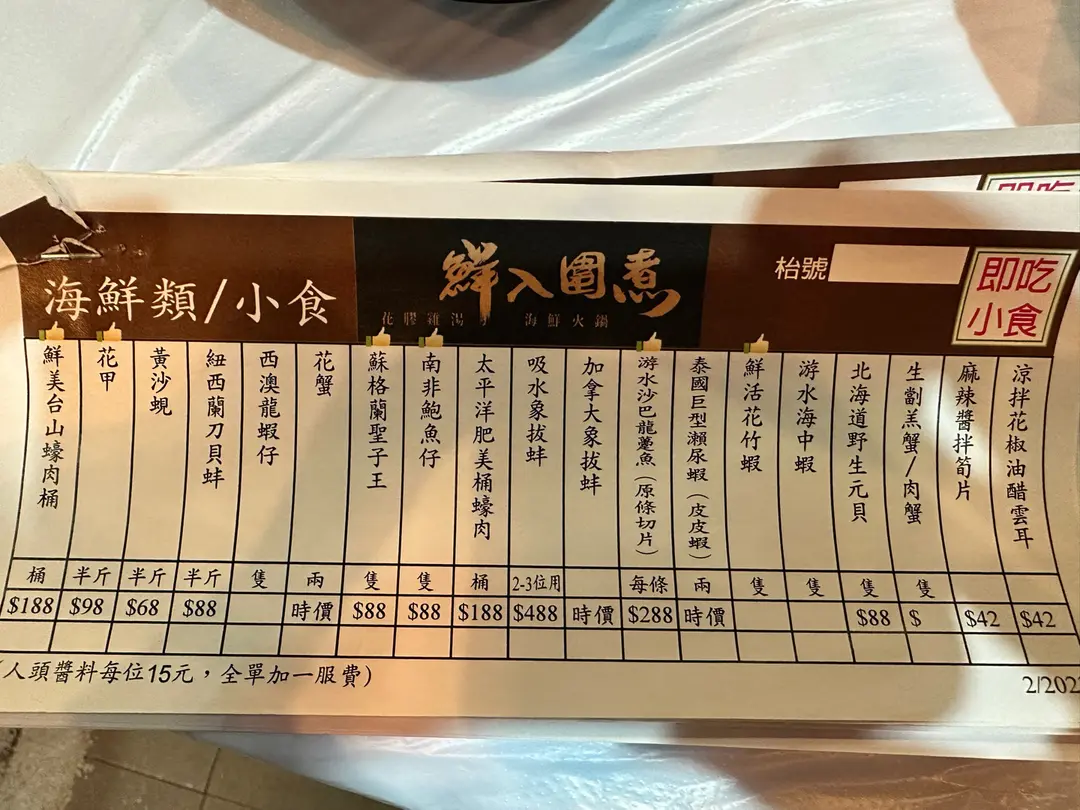 海鮮類/小食
鮮入圍煮
花膠雞湯
海鮮火鍋
枱號
即吃
小食
鮮美台山蠔肉桶
桶
$188
花甲
半斤
$98
黃沙蜆
半斤
$68
紐西蘭刀貝蚌
半斤
$88
西澳龍蝦仔
隻
花蟹
兩
時價
蘇格蘭聖子王
隻
$88
南非鮑魚仔
隻
$88
太平洋肥美桶蠔肉
桶
$188
吸水象拔蚌
2-3位用
$488
加拿大象拔蚌
時價
游水沙巴龍躉魚(原條切片)
每條
$288
泰國巨型瀨尿蝦(皮皮蝦)
兩
時價
鮮活花竹蝦
隻
游水海中蝦
隻
北海道野生元貝
隻
$88
生劏羔蟹/肉蟹
隻
$
麻辣醬拌筍片
$42
涼拌花椒油醋雲耳
$42
(人頭醬料每位15元，全單加一服費)
2/202
即吃